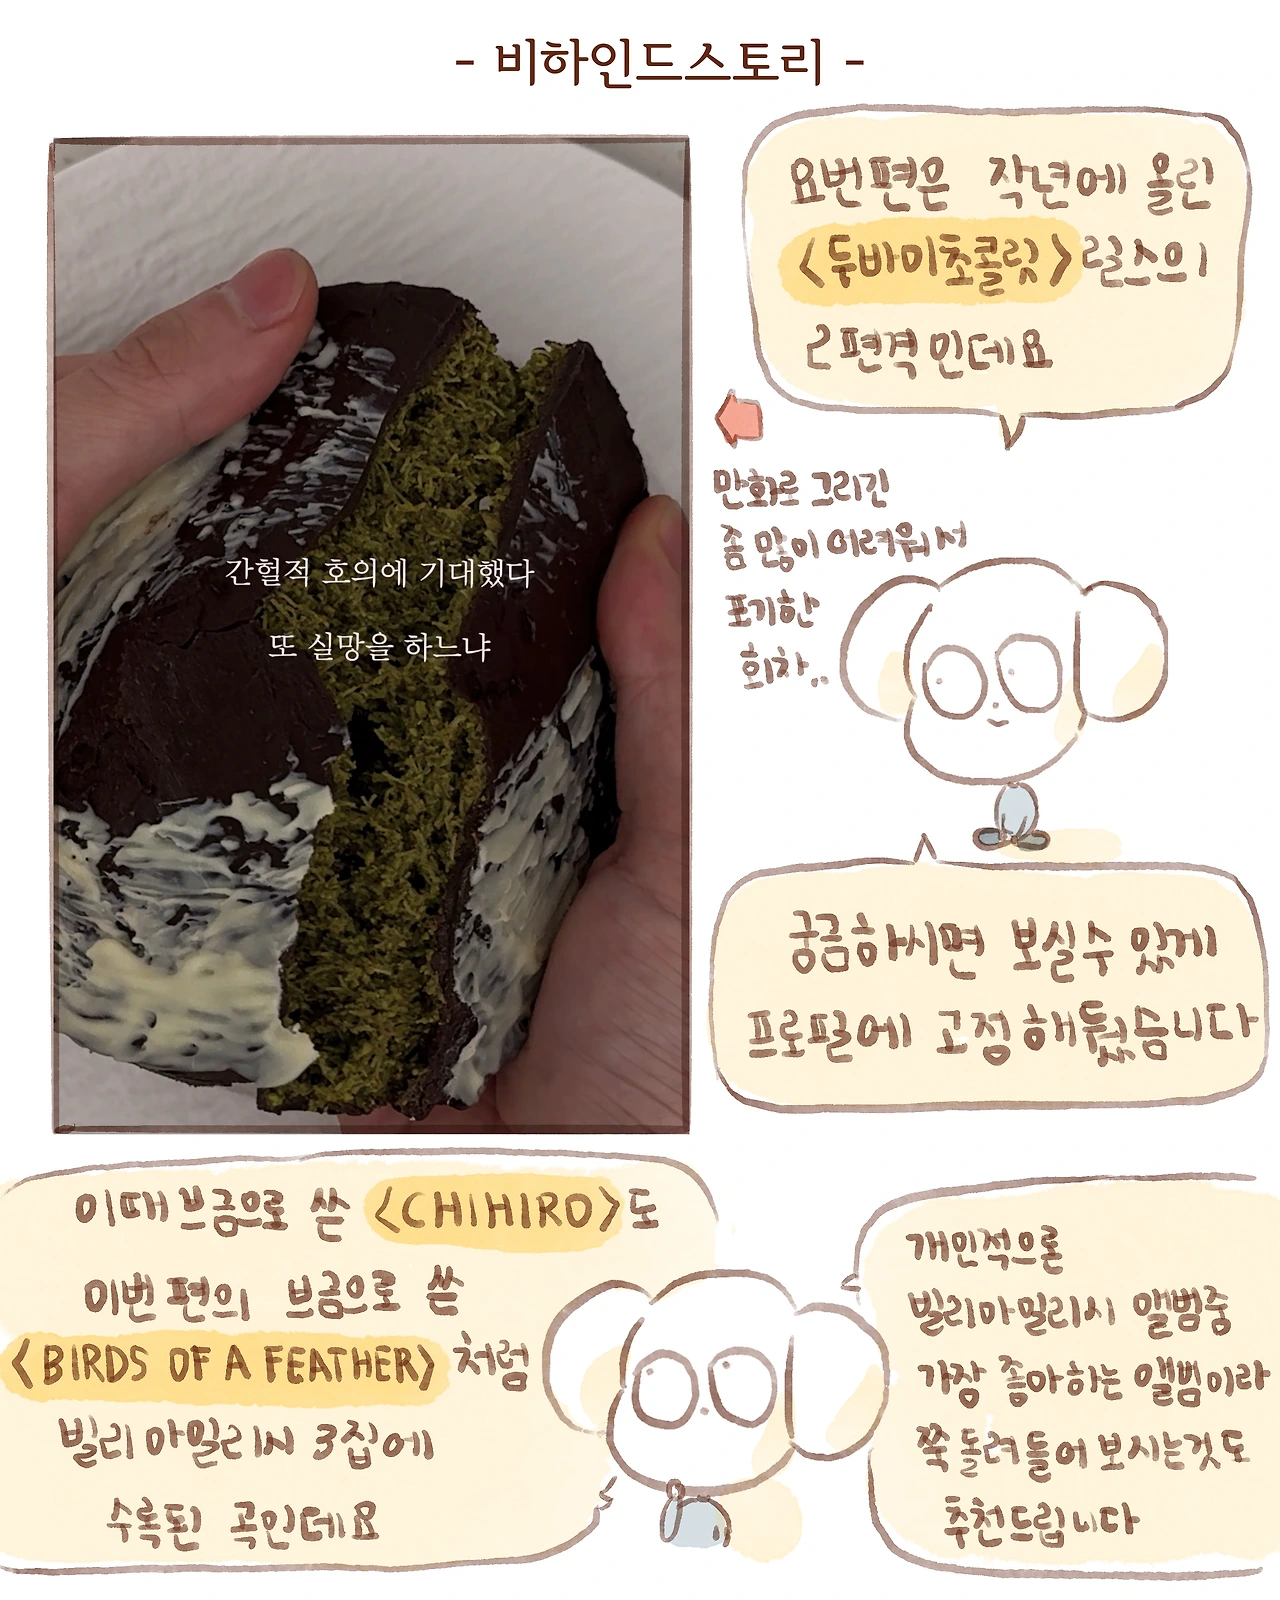 - 비하인드스토리 -
요번편은 작년에 올린
<두바이초콜릿> 릴스의
2편격인데요
간헐적 호의에 기대했다
또 실망을 하느냐
만화로 그리긴
좀 많이 어려워서
포기한
회차..
궁금하시면 보실수 있게
프로필에 고정해뒀습니다
이때 브금으로 쓴 <CHIHIRO>도
이번편의 브금으로 쓴
<BIRDS OF A FEATHER> 처럼
빌리아일리시 3집에
수록된 곡인데요
개인적으론
빌리아일리시 앨범중
가장 좋아하는 앨범이라
쭉 돌려들어보시는것도
추천드립니다